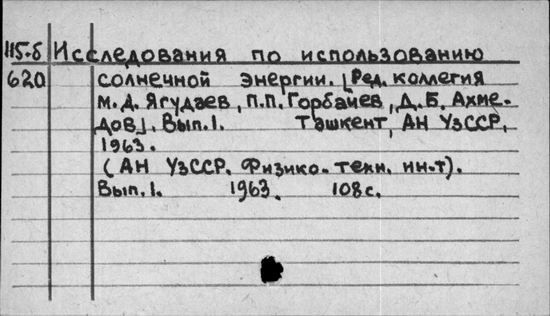 115-б Исследования по использованию
620 солнечной энергии. [Ред. коллегия
М.Д. Ягудаев, П.П. Горбачев, Д.Б. Ахме-
дов]. Вып.1. Ташкент, АН УзССР,
1963.
(АН УзССР. Физико-техн. ин-т).
Вып.1. 1963. 108с.